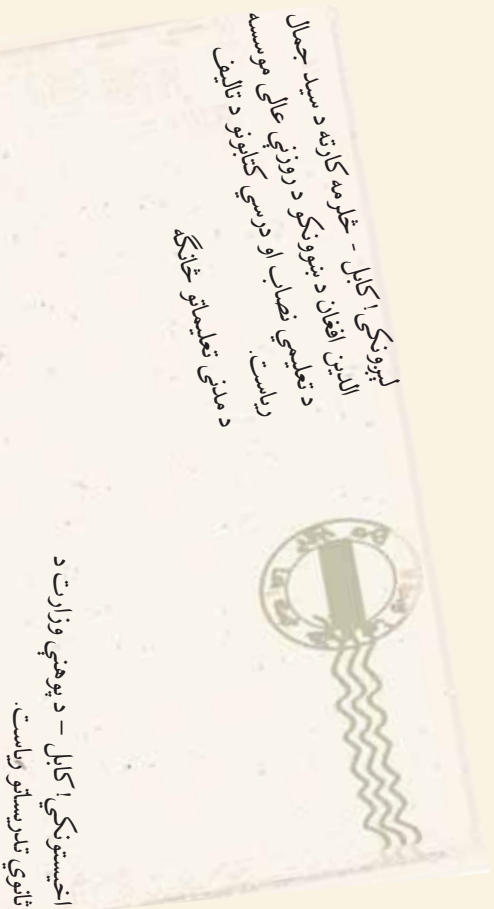 لېږونکی! کابل - څلرمه کارته د سید جمال
الدین افغان د ښوونکو د روزنې عالي موسسه
د تعلیمي نصاب او درسي کتابونو د تالیف
ریاست.
د مدني تعلیماتو څانګه
اخیستونکي! کابل – د پوهنې وزارت د
ثانوي تدریساتو ریاست.